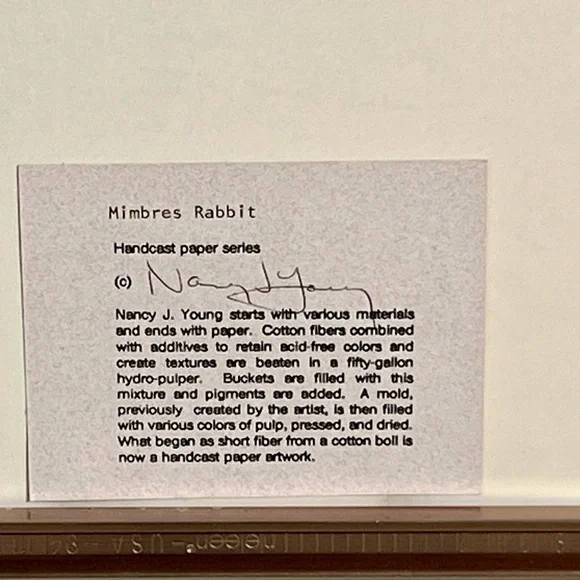 Mimbres Rabbit
Handcast paper series
(c) Nancy J Young
Nancy J. Young starts with various materials
and ends with paper. Cotton fibers combined
with additives to retain acid-free colors and
create textures are beaten in a fifty-gallon
hydro-pulper. Buckets are filled with this
mixture and pigments are added. A mold,
previously created by the artist, is then filled
with various colors of pulp, pressed, and dried.
What began as short fiber from a cotton boll is
now a handcast paper artwork.